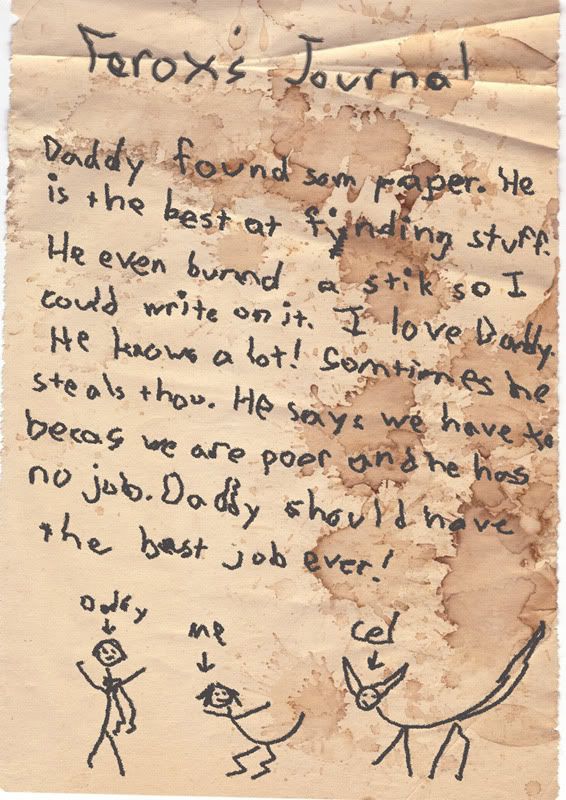 Ferox's Journal
Daddy found som paper. He
is the best at fynding stuff.
He even burnd a stik so I
could write on it. I love Daddy.
He knows a lot! Somtimes he
steals thou. He says we have to
becas we are poer and he has
no job. Daddy should have
the best job ever!
Daddy
me
Cel